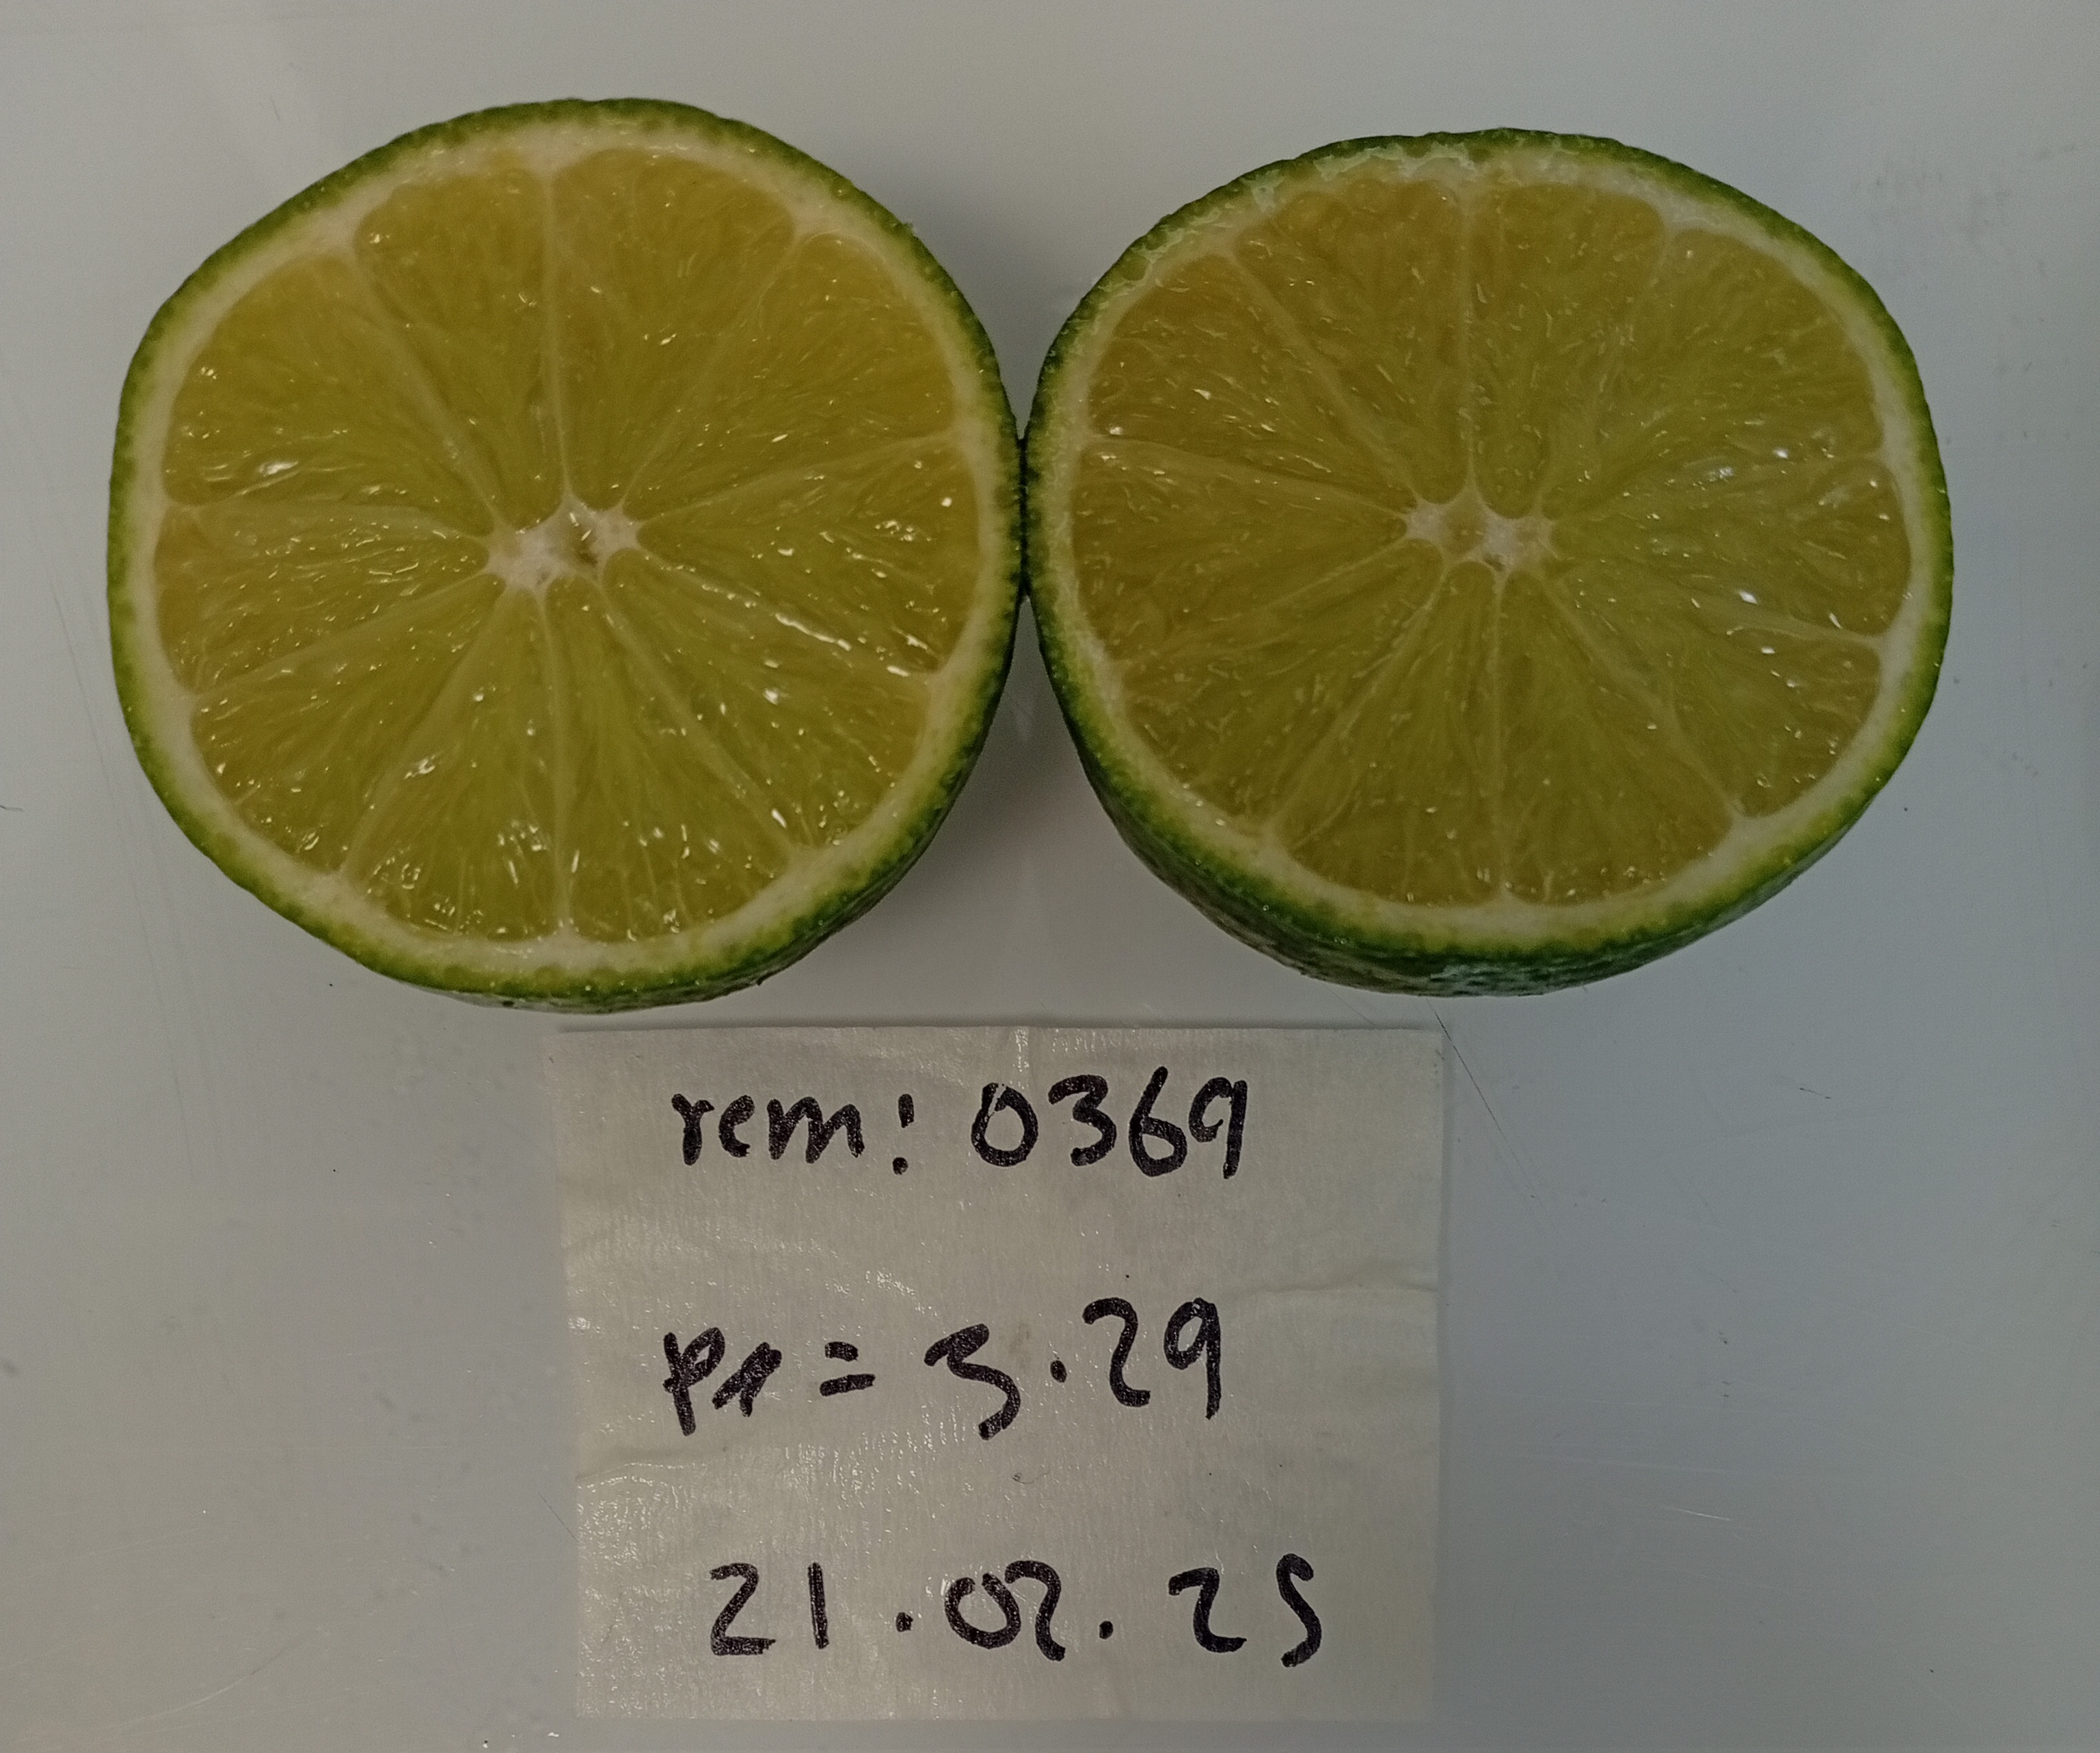 rem: 0369
PH = 3.29
21.02.25